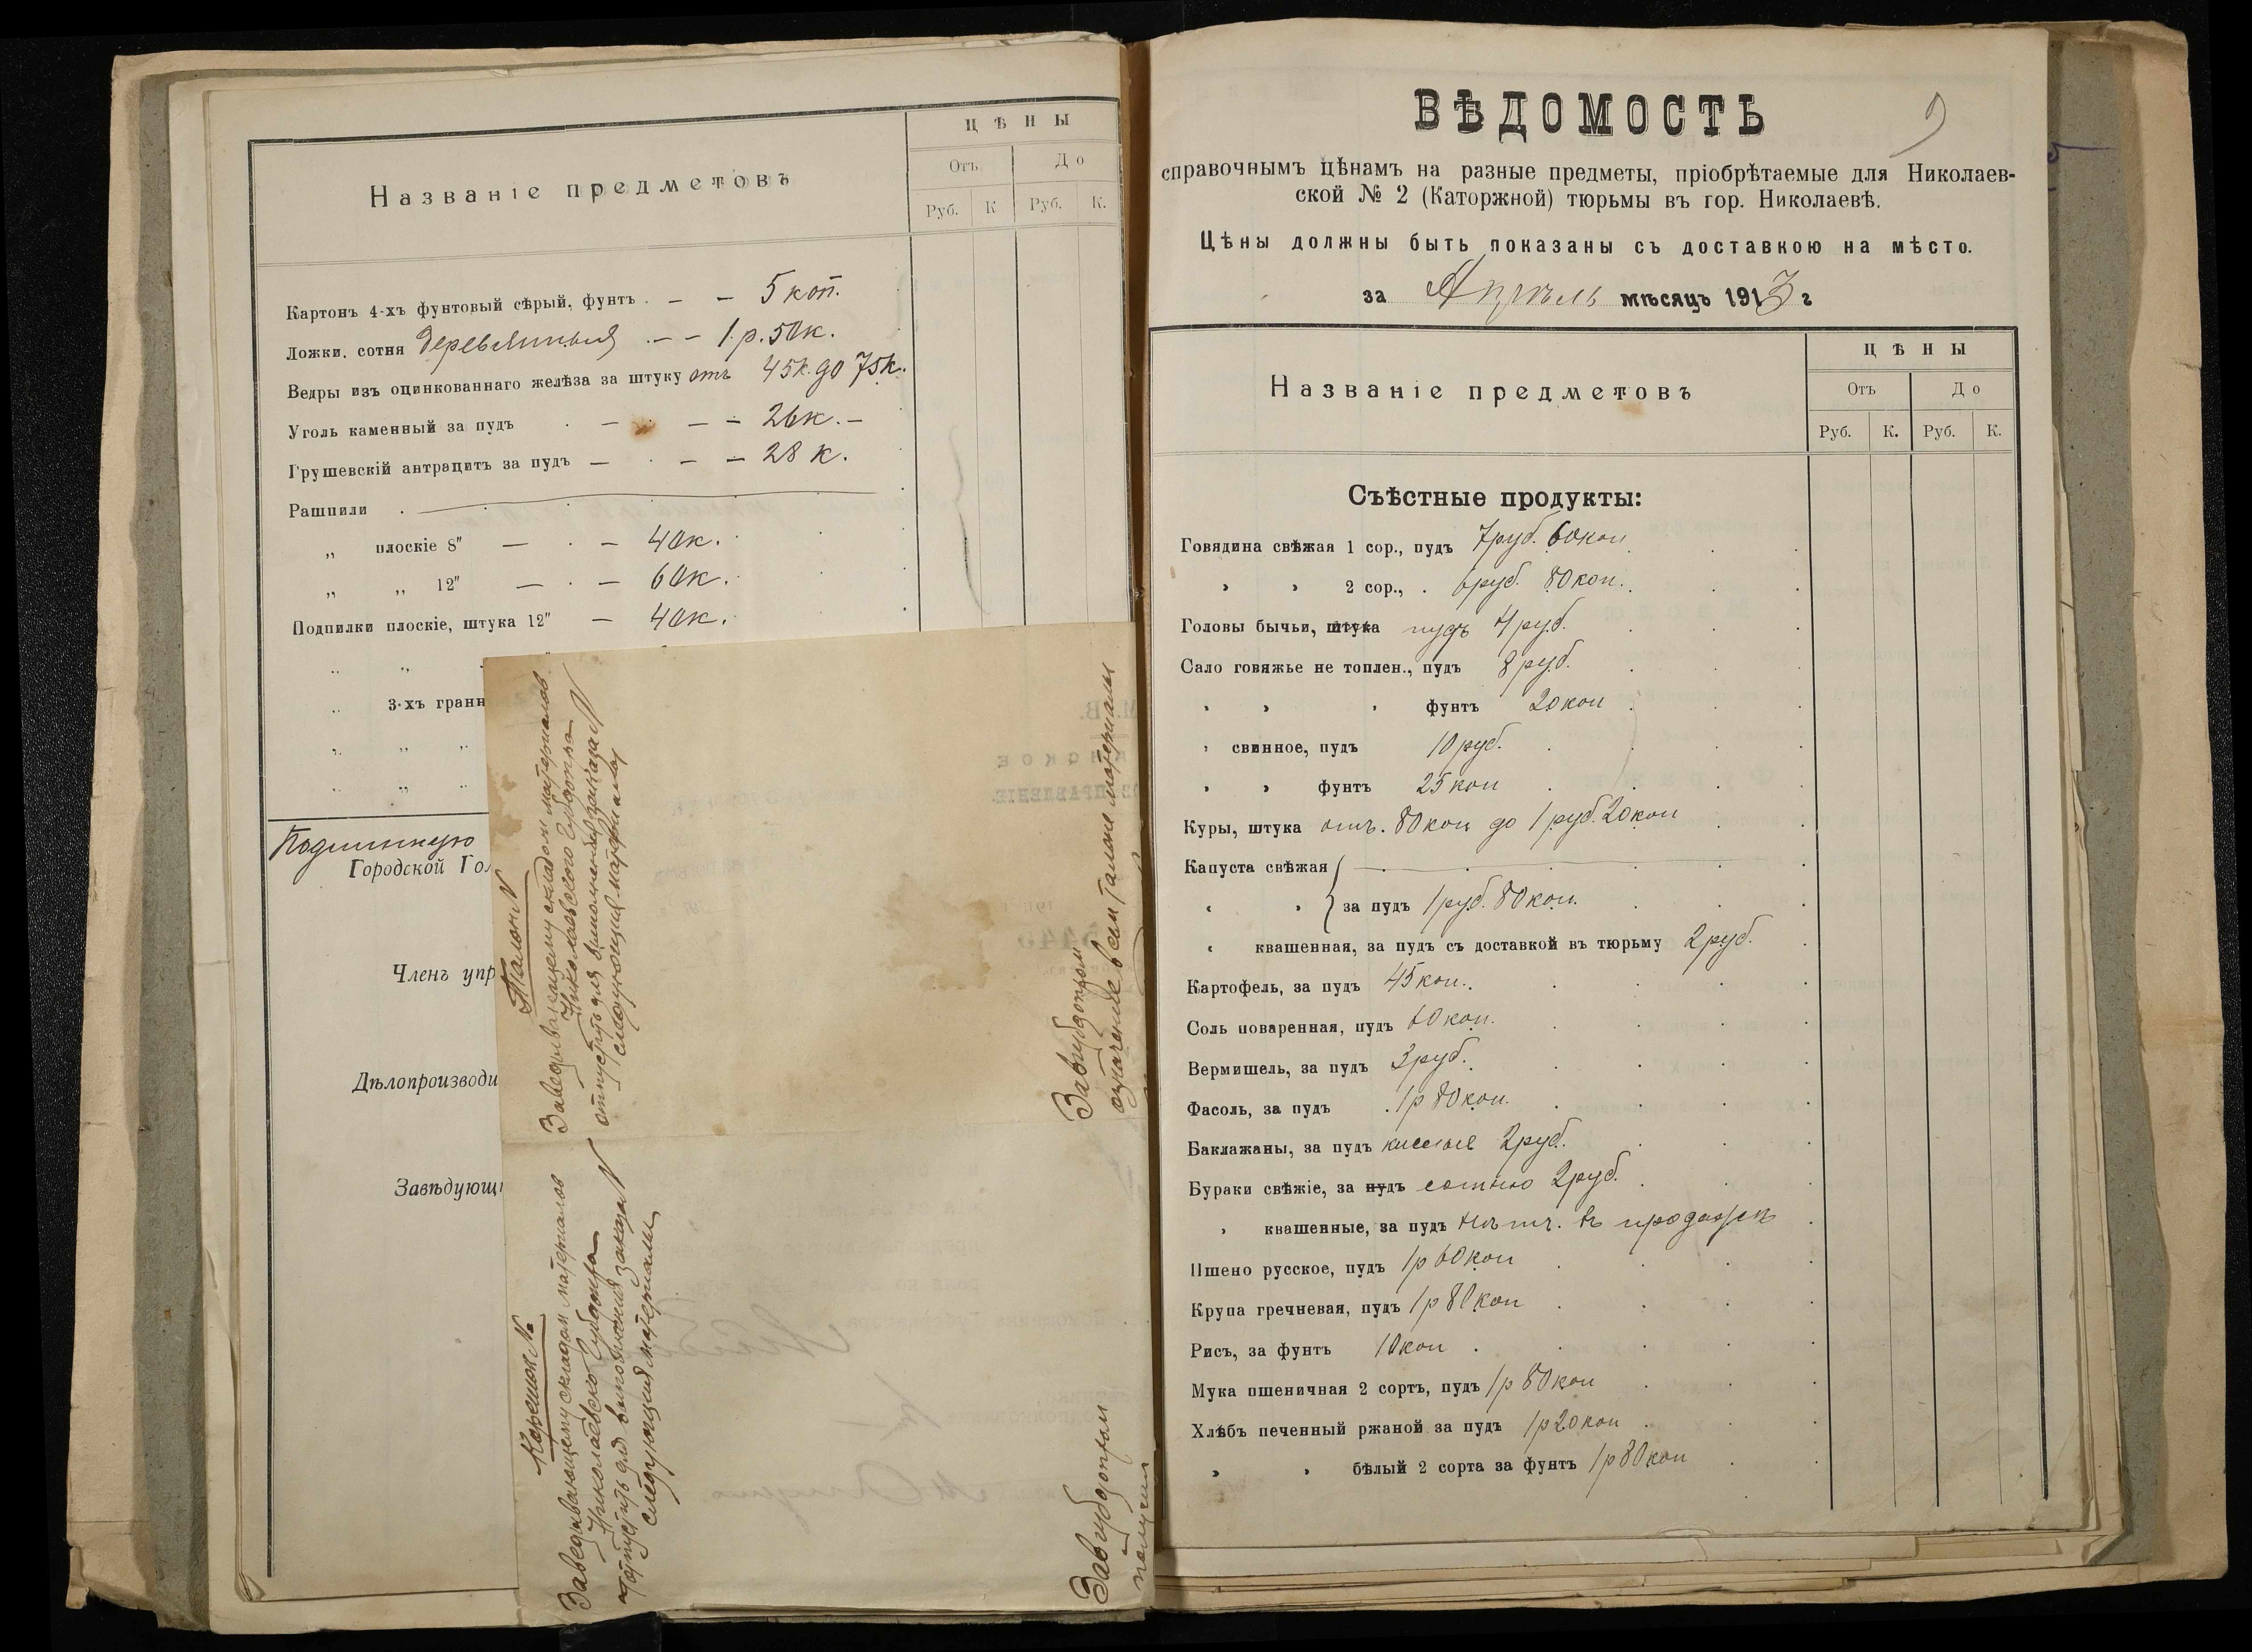 Названіе предметовъ
ЦѢНЫ
Отъ До
Руб. К Руб. К.
Картонъ 4-хъ фунтовый сѣрый, фунтъ . — — 5 коп.
Ложки, сотня деревянныя . — — 1 р. 50 к.
Ведры изъ оцинкованнаго желѣза за штуку отъ 45 к. до 75 к.
Уголь каменный за пудъ . — — — 26 к. —
Грушевскій антрацитъ за пудъ — . — — 28 к.
Рашпили
„ плоскіе 8" — . — 40 к.
„ „ 12" — . — 60 к.
Подпилки плоскіе, штука 12" — 40 к.
„ „
„ 3-хъ гранн
„ „ „
„ „ „
Подлинную
Городской Гол
Членъ упр
Дѣлопроизводи
Завѣдующ
Талон №
Заведывающему складом материалов
Николаевского Губдопра
отпустить для выполнения заказа №
следующия материалы
Завгубдопром
означенные в сем талоне материалы
Корешок №
Заведывающему складом материалов
Николаевского Губдопра
Отпустить для выполнения заказа №
следующия материалы
Завгубдопром
получил
9
ВѢДОМОСТЬ
справочнымъ цѣнамъ на разные предметы, пріобрѣтаемые для Николаев-
ской № 2 (Каторжной) тюрьмы въ гор. Николаевѣ.
Цѣны должны быть показаны съ доставкою на мѣсто.
за Апрѣль мѣсяцъ 1913 г
Названіе предметовъ
ЦѢНЫ
Отъ До
Руб. К. Руб. К.
Съѣстные продукты:
Говядина свѣжая 1 сор., пудъ 7 руб. 60 коп
„ „ 2 сор., . 6 руб. 80 коп.
Головы бычьи, штука пудъ 4 руб.
Сало говяжье не топлен., пудъ 8 руб.
„ „ „ фунтъ 20 коп
„ свинное, пудъ 10 руб.
„ „ фунтъ 25 коп
Куры, штука отъ. 80 коп до 1 руб. 20 коп
Капуста свѣжая
„ „ за пудъ 1 руб. 80 коп.
„ квашенная, за пудъ съ доставкой въ тюрьму 2 руб.
Картофель, за пудъ 45 коп.
Соль поваренная, пудъ 60 коп.
Вермишель, за пудъ 3 руб.
Фасоль, за пудъ . 1 р 80 коп.
Баклажаны, за пудъ кислые 2 руб.
Бураки свѣжіе, за пудъ сотню 2 руб.
„ квашенные, за пудъ нѣтъ въ продажѣ
Пшено русское, пудъ 1 р 60 коп
Крупа гречневая, пудъ 1 р 80 коп
Рисъ, за фунтъ 10 коп
Мука пшеничная 2 сортъ, пудъ 1 р 80 коп
Хлѣбъ печенный ржаной за пудъ 1 р 20 коп
„ „ бѣлый 2 сорта за фунтъ 1 р 80 коп